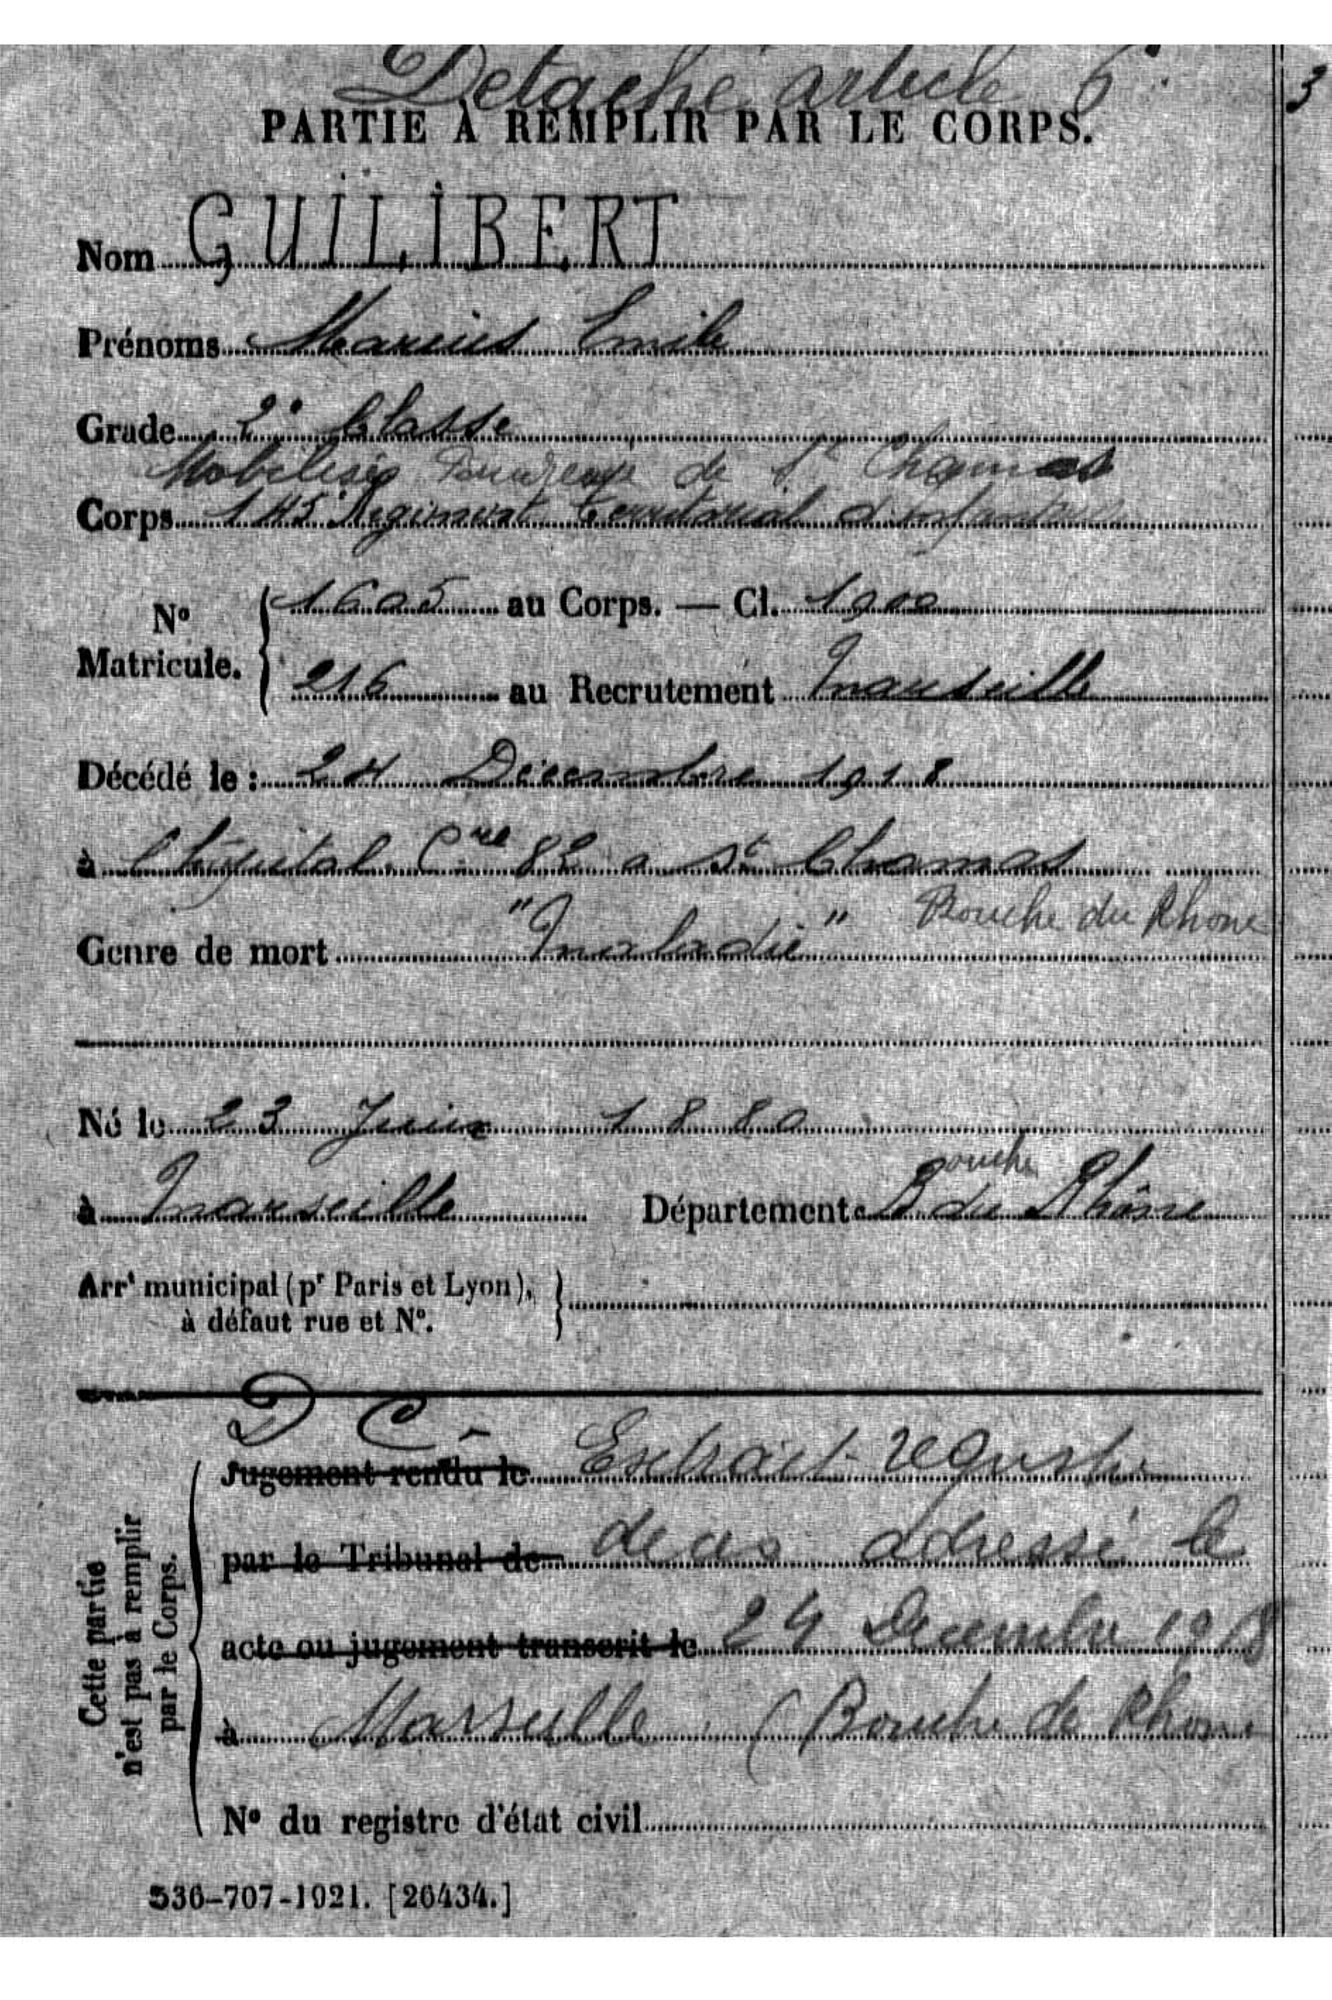 Détaché article 6
3
PARTIE À REMPLIR PAR LE CORPS.
Nom GUILIBERT
Prénoms Marius Emile
Grade 2e Classe
Mobilisé de St Chamas
Corps 145 Régiment Territorial d'Infanterie
No Matricule. 1605 au Corps. — Cl. 1900
216 au Recrutement Marseille
Décédé le : 24 Décembre 1918
à l'hôpital Cre 82 a St Chamas
Bouche du Rhone
Genre de mort "Maladie"
Né le 23 Juin 1880
à Marseille Département Bouche du Rhône
Arrt municipal (pr Paris et Lyon),
à défaut rue et No.
D C
Cette partie n'est pas à remplir par le Corps.
Jugement rendu le Extrait registre
par le Tribunal de deces adressé le
acte ou jugement transcrit le 24 Decembre 1918
à Marseille (Bouche de Rhone
No du registre d'état civil
536-707-1921. [26434.]